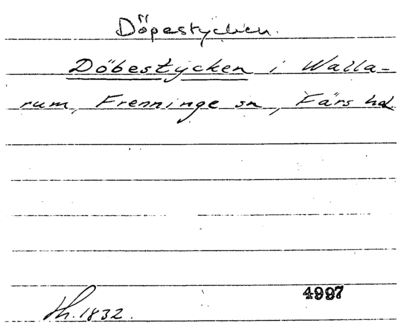 Döpestycken.
Döbestycken i Walla-
rum, Frenninge sn, Färs hd
4997
Th. 1832.